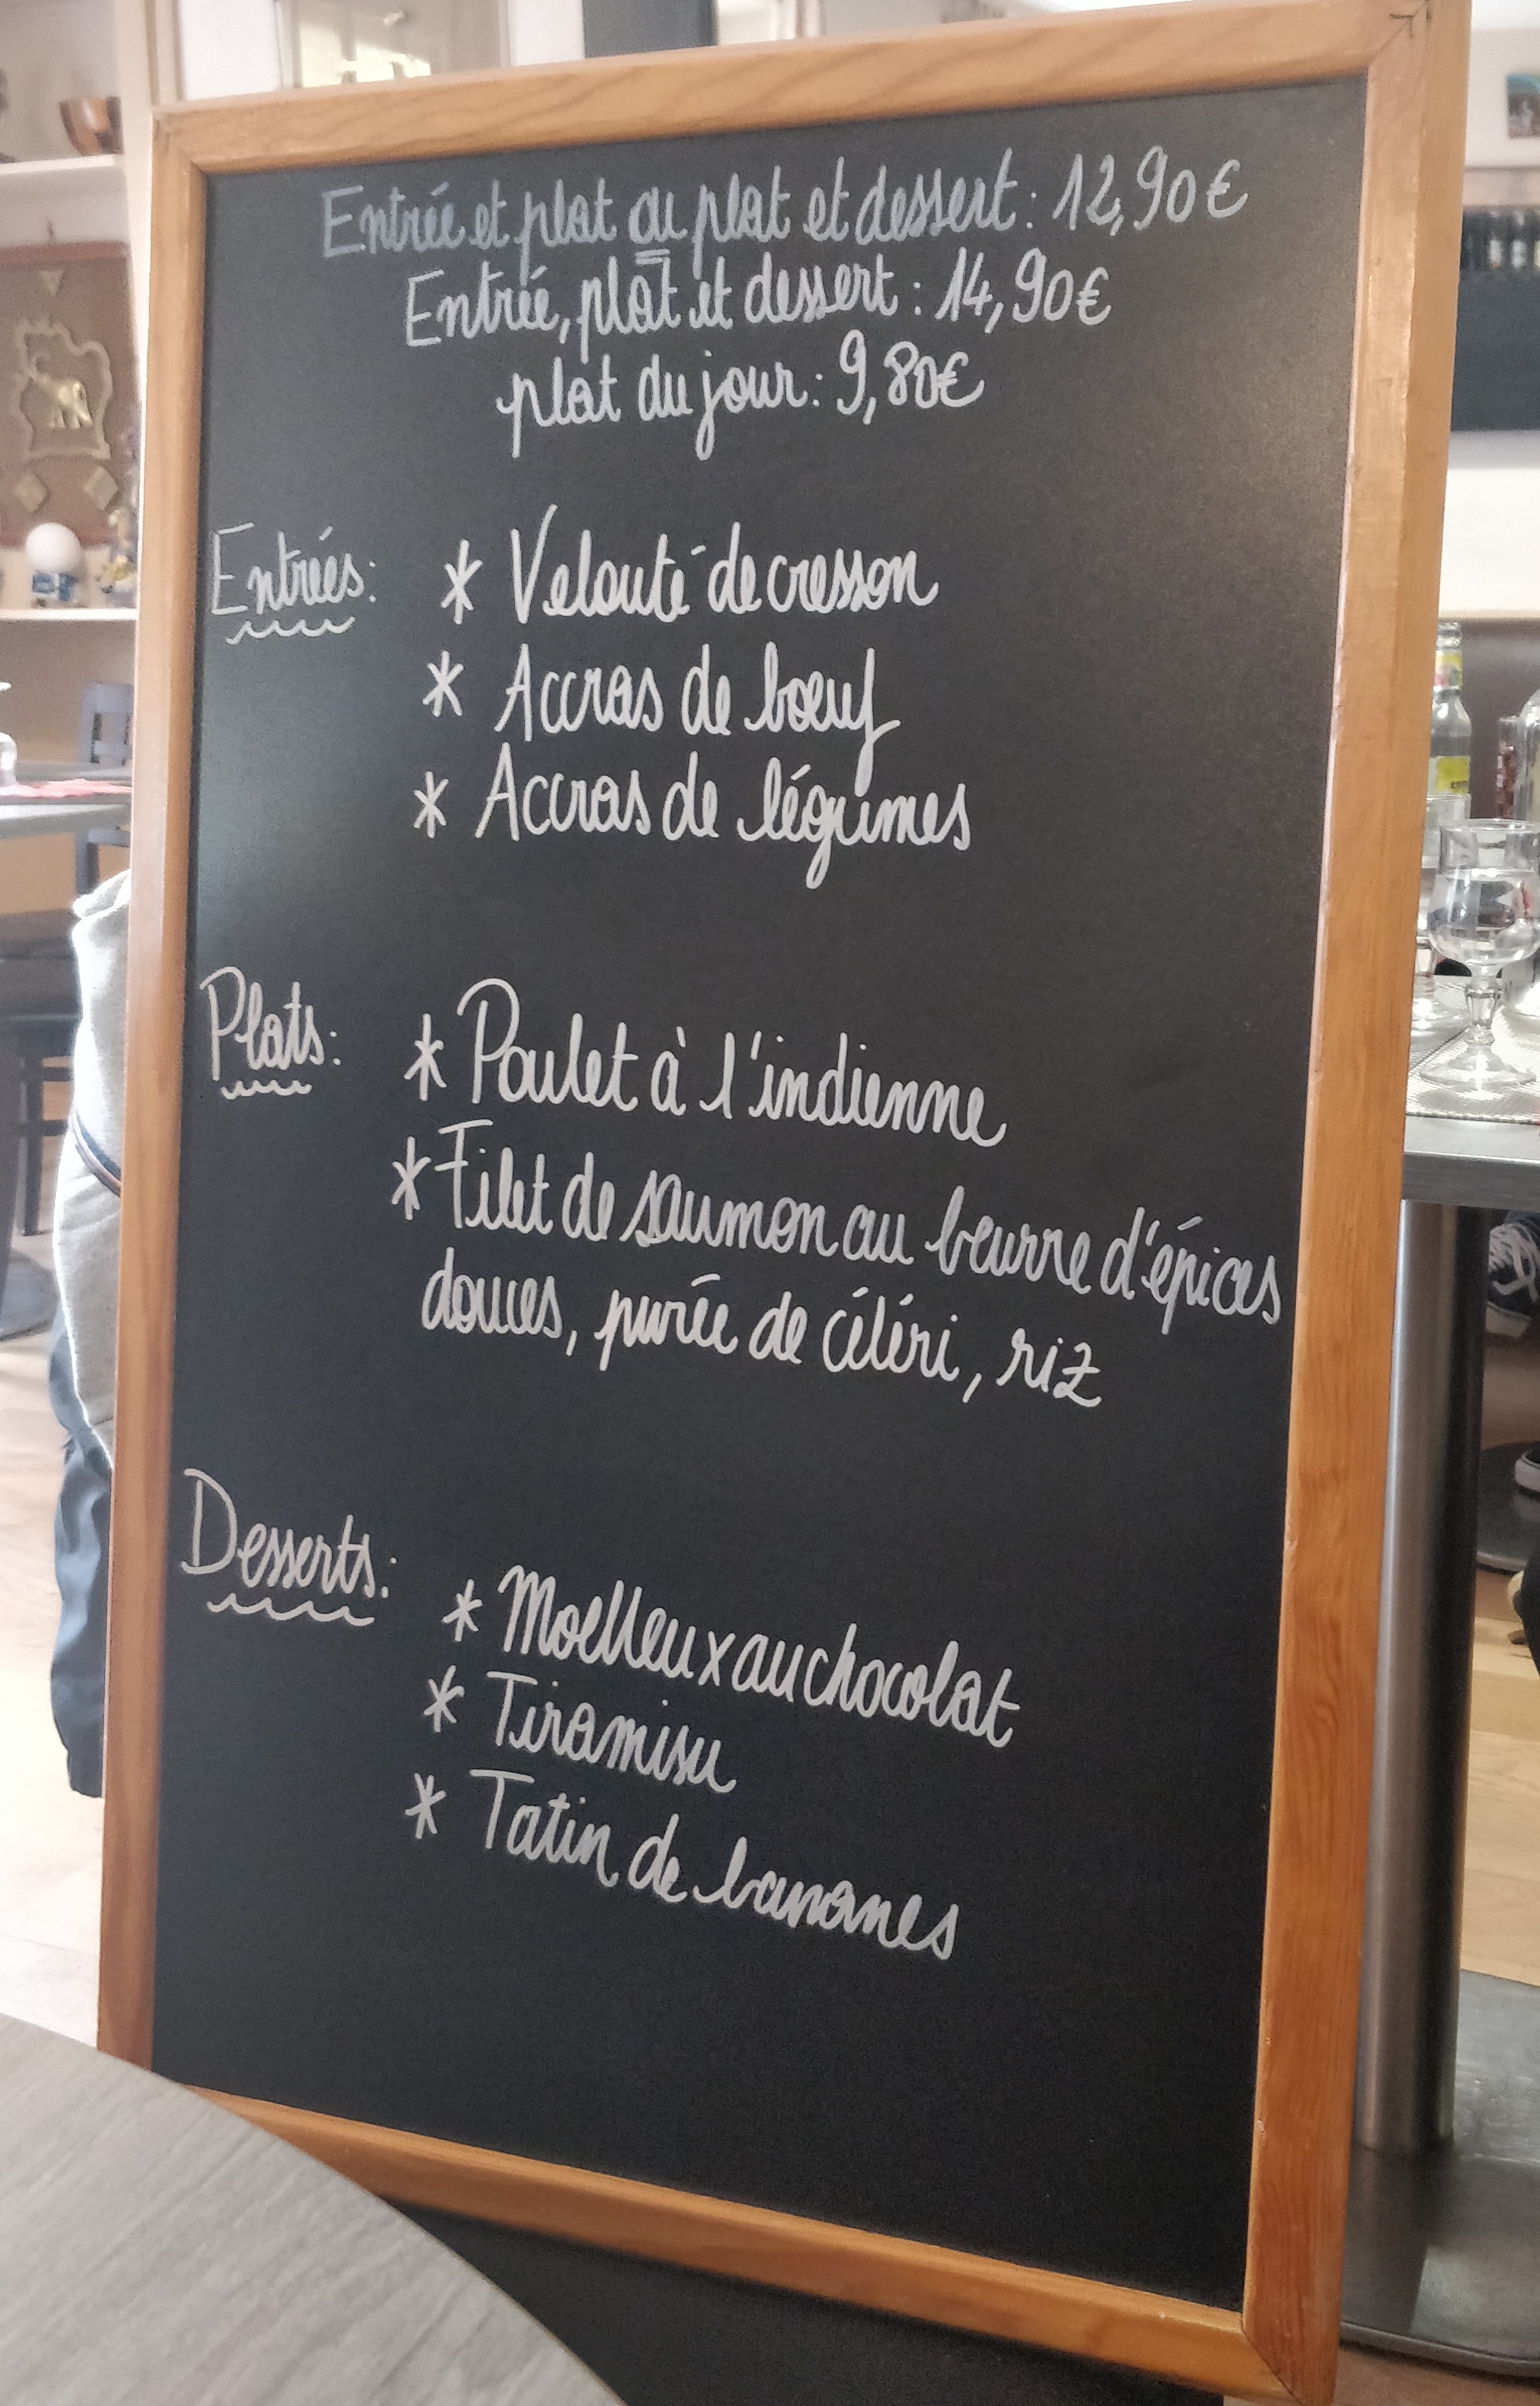 Entrée et plat ou plat et dessert : 12,90€
Entrée, plat et dessert : 14,90€
plat du jour : 9,80€
Entrées : * Velouté de cresson
* Accras de bœuf
* Accras de légumes
Plats : * Poulet à l'indienne
* Filet de saumon au beurre d'épices
douces, purée de céléri, riz
Desserts :
* Moelleux au chocolat
* Tiramisu
* Tatin de bananes